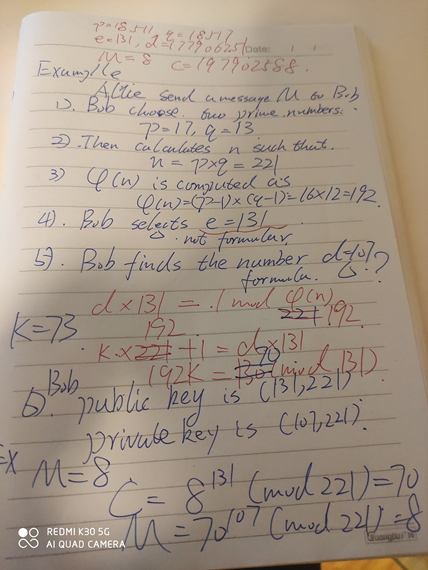 p=18511, q=18517
e=131, d=177906251
Date:
M=8 C=197902588.
Example
Alice send a message M to Bob
1). Bob choose two prime numbers.
p=17, q=13
2). Then calculates n such that.
n = p×q = 221
3) φ(n) is computed as
φ(n)=(p-1)×(q-1)=16×12=192.
4). Bob selects e=131
not formular.
5). Bob finds the number d=107
formula. ?
d×131 = 1 mod φ(n)
221 192
K=73
192
K×221+1 = d×131
70
192K = 130 (mod 131)
6). Bob public key is (131,221)
private key is (107,221).
Ex M=8
C = 8^131 (mod 221)=70
M = 70^107 (mod 221)=8
REDMI K30 5G
AI QUAD CAMERA